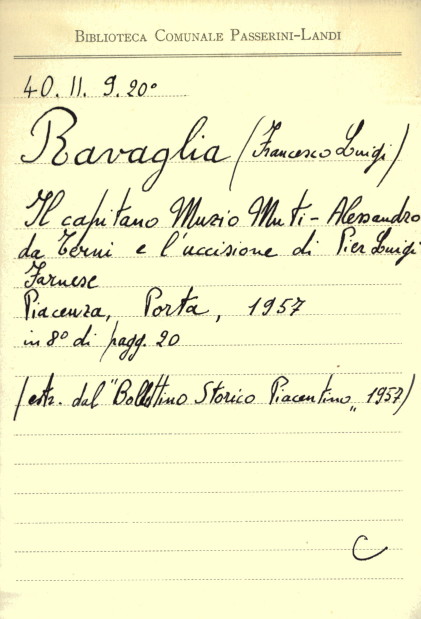 BIBLIOTECA COMUNALE PASSERINI-LANDI
40. II. 9. 20°
Ravaglia (Francesco Luigi)
Il capitano Muzio Muti - Alessandro
da Terni e l'uccisione di Pier Luigi
Farnese
Piacenza, Porta, 1957
in 8° di pagg. 20
(estr. dal "Bollettino Storico Piacentino„ 1957)
C